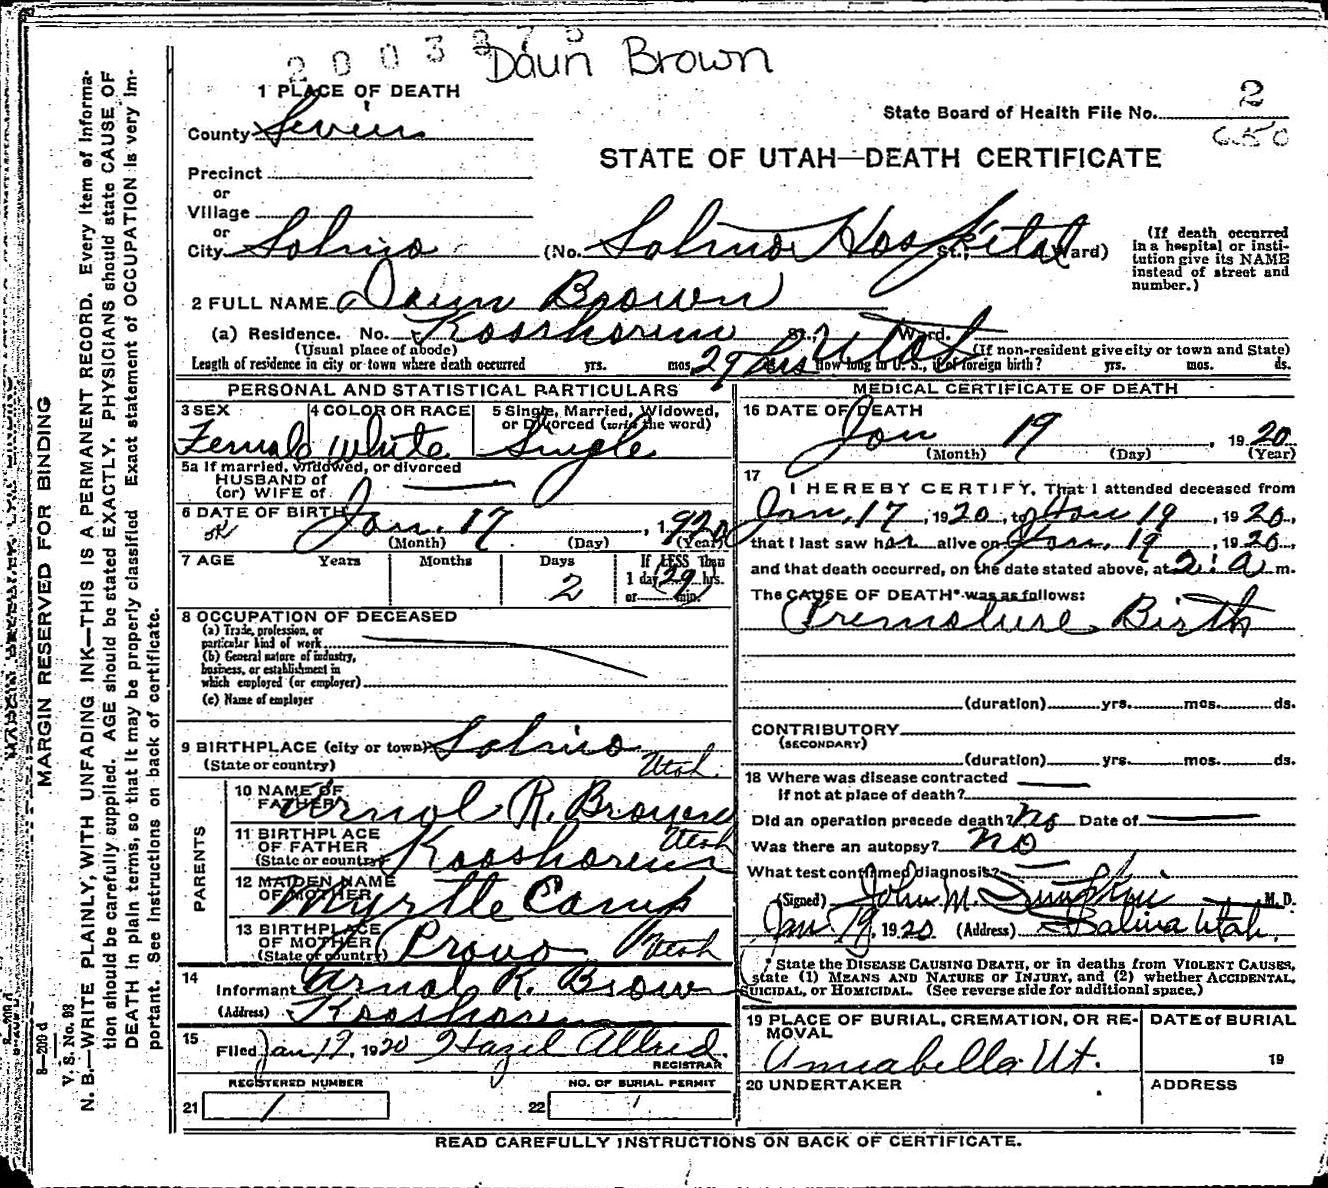 2003375
Daun Brown
1 PLACE OF DEATH
State Board of Health File No. 2
650
County Sevier
STATE OF UTAH—DEATH CERTIFICATE
Precinct
or
Village
or
City Salina (No. Salina Hospital St.; Ward)
(If death occurred in a hospital or insti-
tution give its NAME instead of street and number.)
2 FULL NAME Daun Brown
(a) Residence. No. Koosharem St., Utah Ward.
(Usual place of abode) (If non-resident give city or town and State)
Length of residence in city or town where death occurred yrs. mos. 29 hrs How long in U. S., if of foreign birth? yrs. mos. ds.
PERSONAL AND STATISTICAL PARTICULARS
3 SEX 4 COLOR OR RACE 5 Single, Married, Widowed, or Divorced (write the word)
Female White Single
5a If married, widowed, or divorced
HUSBAND of
(or) WIFE of
6 DATE OF BIRTH Jan. 17, 1920
OK (Month) (Day) (Year)
7 AGE Years Months Days If LESS than
2 1 day, 29 hrs.
or min.
8 OCCUPATION OF DECEASED
(a) Trade, profession, or
particular kind of work
(b) General nature of industry,
business, or establishment in
which employed (or employer)
(c) Name of employer
9 BIRTHPLACE (city or town) Salina
(State or country) Utah.
PARENTS
10 NAME OF FATHER Arnol R. Brown
11 BIRTHPLACE OF FATHER (State or country) Koosharem Utah
12 MAIDEN NAME OF MOTHER Myrtle Camp
13 BIRTHPLACE OF MOTHER (State or country) Provo Utah
14 Informant Arnol R. Brown
(Address) Koosharem
15 Filed Jan 19, 1920 Hazel Allred.
REGISTRAR
REGISTERED NUMBER NO. OF BURIAL PERMIT
21 1 22 1
MEDICAL CERTIFICATE OF DEATH
16 DATE OF DEATH
Jan 19, 1920
(Month) (Day) (Year)
17 I HEREBY CERTIFY, That I attended deceased from
Jan. 17, 1920, to Jan 19, 1920,
that I last saw her alive on Jan. 19, 1920,
and that death occurred, on the date stated above, at 2: a m.
The CAUSE OF DEATH* was as follows:
Premature Birth
(duration) yrs. mos. ds.
CONTRIBUTORY
(SECONDARY)
(duration) yrs. mos. ds.
18 Where was disease contracted
if not at place of death?
Did an operation precede death? No Date of
Was there an autopsy? No
What test confirmed diagnosis?
(Signed) John M. M. D.
Jan 19, 1920 (Address) Salina Utah.
State the DISEASE CAUSING DEATH, or in deaths from VIOLENT CAUSES,
state (1) MEANS AND NATURE OF INJURY, and (2) whether ACCIDENTAL,
SUICIDAL, OR HOMICIDAL. (See reverse side for additional space.)
19 PLACE OF BURIAL, CREMATION, OR RE-
MOVAL
DATE of BURIAL
Annabella Ut. 19
20 UNDERTAKER ADDRESS
READ CAREFULLY INSTRUCTIONS ON BACK OF CERTIFICATE.
8—209 d
V. S. No. 98
MARGIN RESERVED FOR BINDING
N. B.—WRITE PLAINLY, WITH UNFADING INK—THIS IS A PERMANENT RECORD. Every item of informa-
tion should be carefully supplied. AGE should be stated EXACTLY. PHYSICIANS should state CAUSE OF
DEATH in plain terms, so that it may be properly classified. Exact statement of OCCUPATION is very im-
portant. See instructions on back of certificate.